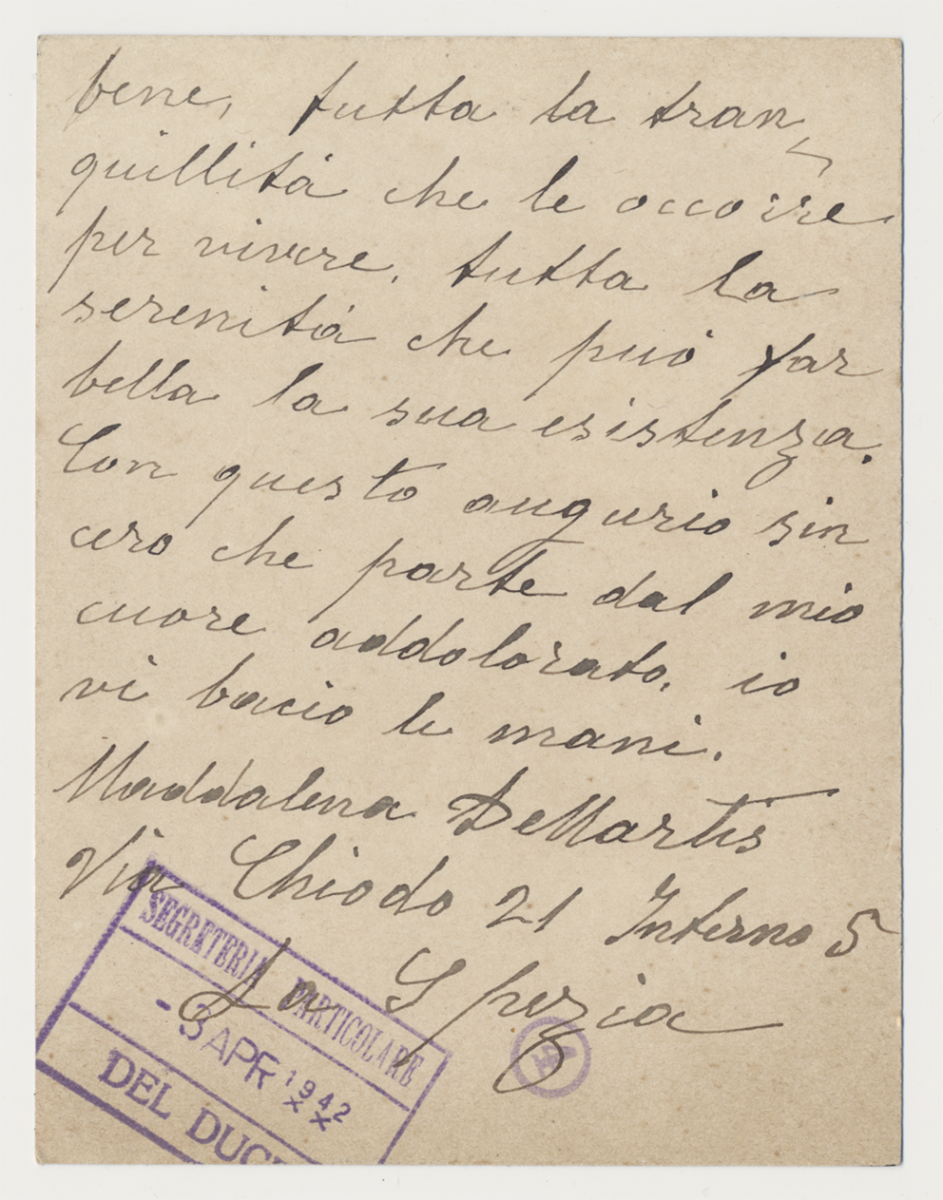 bene, tutta la tran-
quillitá che le occorre
per vivere. tutta la
serenitá che puó far
bella la sua esistenza.
Con questo augurio sin
cero che parte dal mio
cuore addolorato. io
vi bacio le mani.
Maddalena De Martis
Via Chiodo 21 Interno 5
La Spezia
SEGRETERIA PARTICOLARE
-3 APR 1942
XX
DEL DUCE